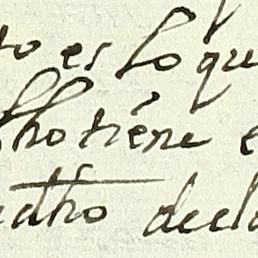 to es lo que
dho tiene e
adho decla